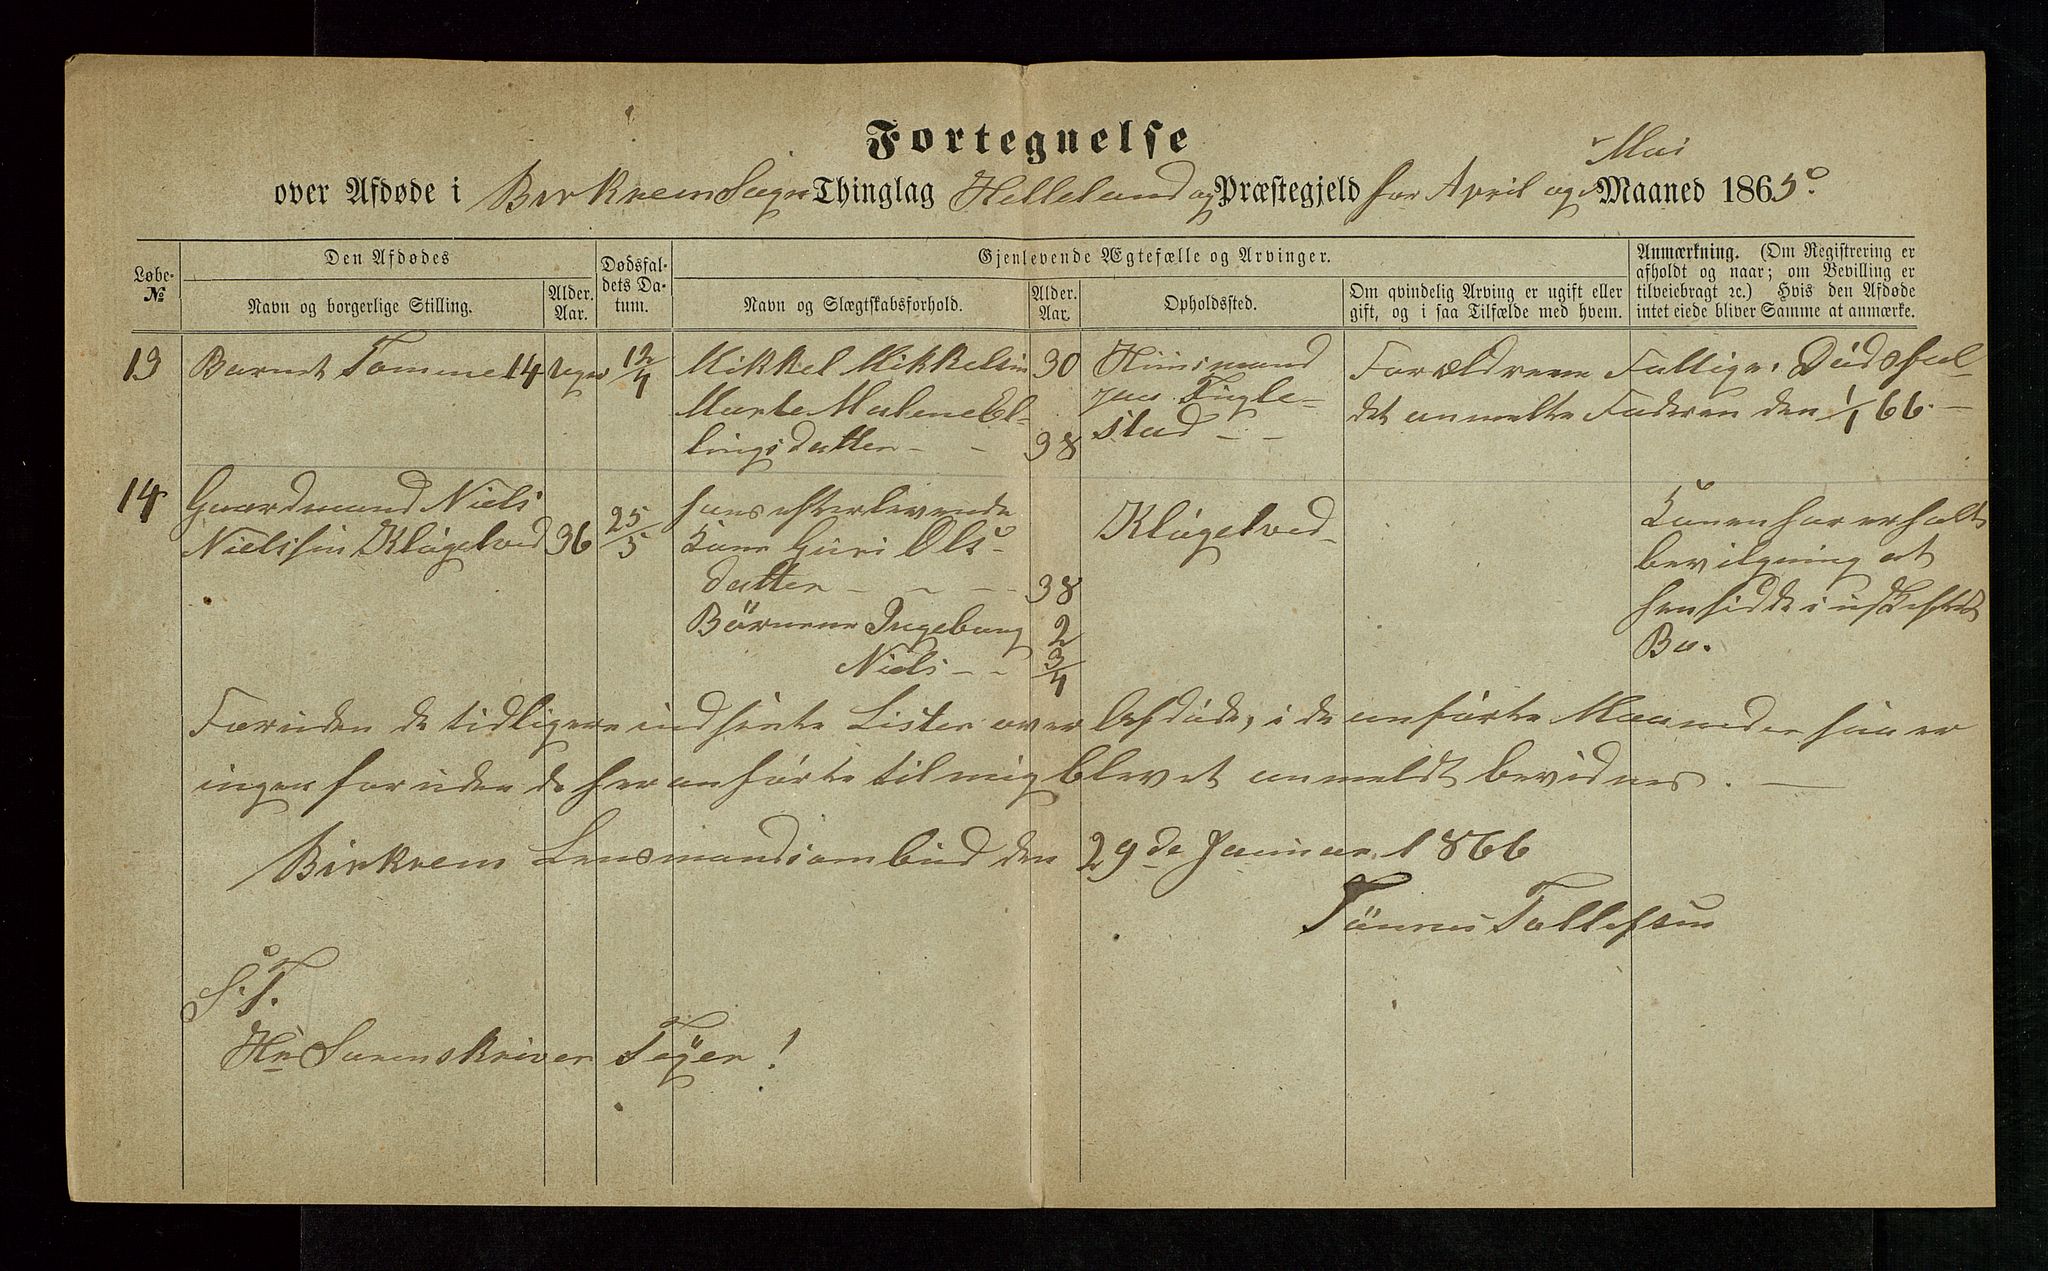 Fortegnelse
over Afdøde i Birkrem Sogn Thinglag Helleland og Præstegjeld for April og Mai Maaned 1865.
Løbe-№
Den Afdødes
Navn og borgerlige Stilling.
Alder. Aar.
Dødsfaldets Datum.
Gjenlevende Ægtefælle og Arvinger.
Navn og Slægtskabsforhold.
Alder. Aar.
Opholdssted.
Om qvindelig Arving er ugift eller
gift, og i saa Tilfælde med hvem.
Anmærkning. (Om Registrering er
afholdt og naar; om Bevilling er
tilveiebragt ꝛc.) Hvis den Afdøde
intet eiede bliver Samme at anmærke.
13 Barnet Tomine 14 uger 12/4 Mikkel Mikkelsen 30 Huusmand Forældrene Fattige. Dødsfal-
Marte Malene El- paa Tingle- det anmelte Faderen den 1/1 66.
lingsdatter - - 38 stad - -
14 Gaardmand Niels hans efterlevende Konen har erholt
Nielsen Kløgetved 36 25/5 Kone Guri Ols- Kløgetved bevilgning at
datter - - - 38 hensidde i uskeftet
Børnene Ingeborg 2 Bo.
Niels - - 3/4
Foruden de tidligere indsente Lister over Afdøde, i de anførte Maaneder saa er
ingen foruden de her anførte til mig blevet anmeldt bevidnes. -
Birkrem Lensmandsombud den 29de Januar 1866
Tönnes Tollefsen
S. T.
Hr Sorenskriver Feyer!